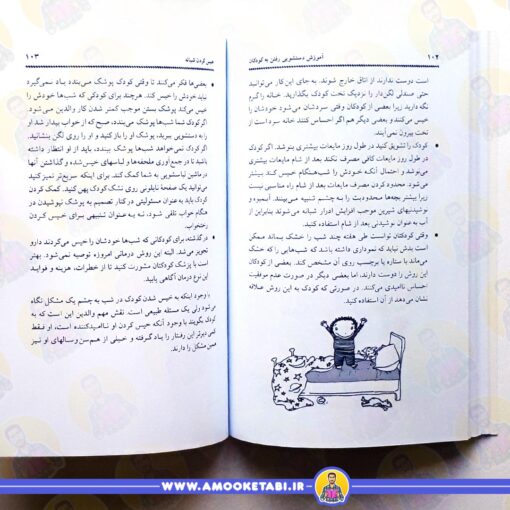 ۱۰۲
آموزش دستشویی رفتن به کودکان
است دوست ندارند از اتاق خارج شوند. به جای این کار می‌توانید
حتی صندلی لگن‌دار را نزدیک تخت کودک بگذارید. خانه را گرم
نگه دارید زیرا بعضی از کودکان وقتی سردشان می‌شود خودشان را
خیس می‌کنند و بعضی دیگر هم اگر احساس کنند خانه سرد است از
تخت بیرون نمی‌آیند.
• کودک را تشویق کنید در طول روز مایعات بیشتری بنوشد. اگر کودک
در طول روز مایعات کافی مصرف نکند بعد از شام بیشتر تشنه
می‌شود و احتمال آنکه خودش را شب هنگام خیس کند بیشتر
می‌شود. محدود کردن مصرف مایعات بعد از شام راه مناسبی نیست
زیرا بیشتر بچه‌ها محدودیت را به چشم تنبیه می‌بینند. آبمیوه و
نوشیدنیهای شیرین موجب افزایش ادرار شبانه می‌شوند بنابراین از
آب به عنوان نوشیدنی بعد از شام استفاده کنید.
• وقتی کودکتان توانست طی هفته چند شب را خشک بماند ممکن
است بدش نیاید که نموداری داشته باشد که شب‌هایی را که خشک
می‌ماند با ستاره یا برچسب روی آن مشخص کند. بعضی از کودکان
این روش را دوست دارند، اما بعضی دیگر در صورت عدم موفقیت
احساس ناامیدی می‌کنند. در صورتی که کودک به این روش علاقه
نشان می‌دهد از آن استفاده کنید.
خیس کردن شبانه
۱۰۳
• بعضی‌ها فکر می‌کنند تا وقتی کودک پوشک می‌بندد یاد نمی‌گیرد
نباید خودش را خیس کند. هرچند برای کودکی که شب‌ها خودش را
خیس می‌کند پوشک بستن موجب کمتر شدن کار والدین می‌شود.
اگر کودک شما شب‌ها پوشک می‌بندد، صبح که از خواب بیدار شد او
را به دستشویی ببرید، پوشک او را باز کنید و او را روی لگن بنشانید.
• اگر کودک نمی‌خواهد شب‌ها پوشک ببندد، باید از او انتظار داشته
باشید تا در جمع‌آوری ملحفه‌ها و لباسهای خیس شده و گذاشتن آنها
در ماشین لباسشویی به شما کمک کند. برای اینکه سریع‌تر تمیز کنید
می‌توانید یک صفحهٔ نایلونی روی تشک کودک پهن کنید. کمک کردن
کودک باید به عنوان مسئولیتی در کنار تصمیم به پوشک نپوشیدن در
هنگام خواب تلقی شود، نه به عنوان تنبیهی برای خیس کردن
رختخواب.
• در گذشته، برای کودکانی که شب‌ها خودشان را خیس می‌کردند دارو
تجویز می‌شد. البته این روش درمانی امروزه توصیه نمی‌شود. بهتر
است با پزشک کودکتان مشورت کنید تا از خطرات، هزینه و فواید
این نوع درمان آگاهی یابید.
با وجود اینکه به خیس شدن کودک در شب به چشم یک مشکل نگاه
می‌شود ولی یک مسئله طبیعی است. نقش مهم والدین این است که به
کودک بگویند با وجود آنکه خیس کردن او ناامیدکننده است، او فقط
کمی دیرتر این رفتار را یاد گرفته و خیلی از هم‌سن‌وسالهای او نیز
همین مشکل را دارند.
WWW.AMOOKETABI.IR